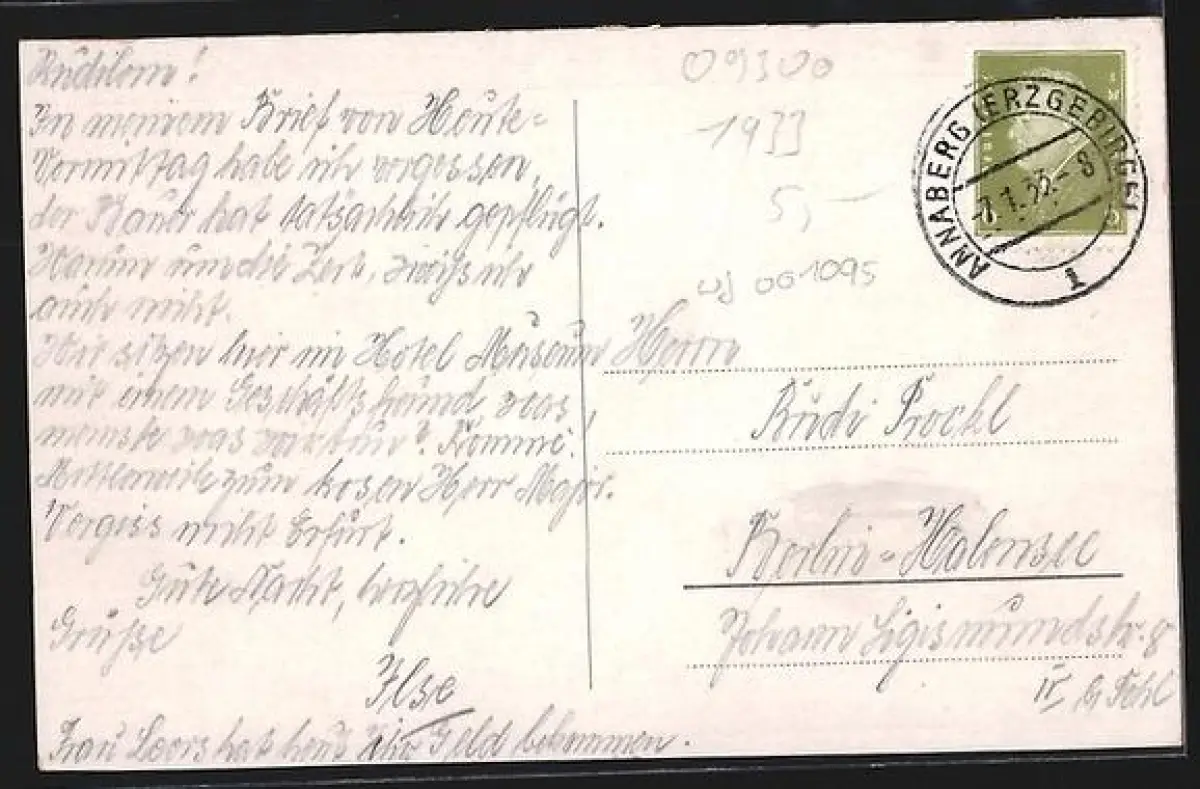 Rudilom!
In meinem Brief von Heute-
Vormittag habe ich vergessen,
der Bauer hat tatsächlich gepflügt.
Warum um die Zeit, weiß ich
auch nicht.
Wir sitzen hier im Hotel Museum
mit einem Geschäftsfreund, was
meinste was war nun? Komme!
Mittlerweile zum bösen Herr Major.
Vergiss nicht Erfurt.
Gute Nacht, herzliche
Grüße
Ilse
Frau Leers hat heut ihr Geld bekommen.
09300
1933
5,-
wj 001095
ANNABERG (ERZGEBIRGE)
7.1.33.-8
1
Herrn
Rudi Prockl
Berlin=Halensee
Johann Sigismundstr. 8
IV b/